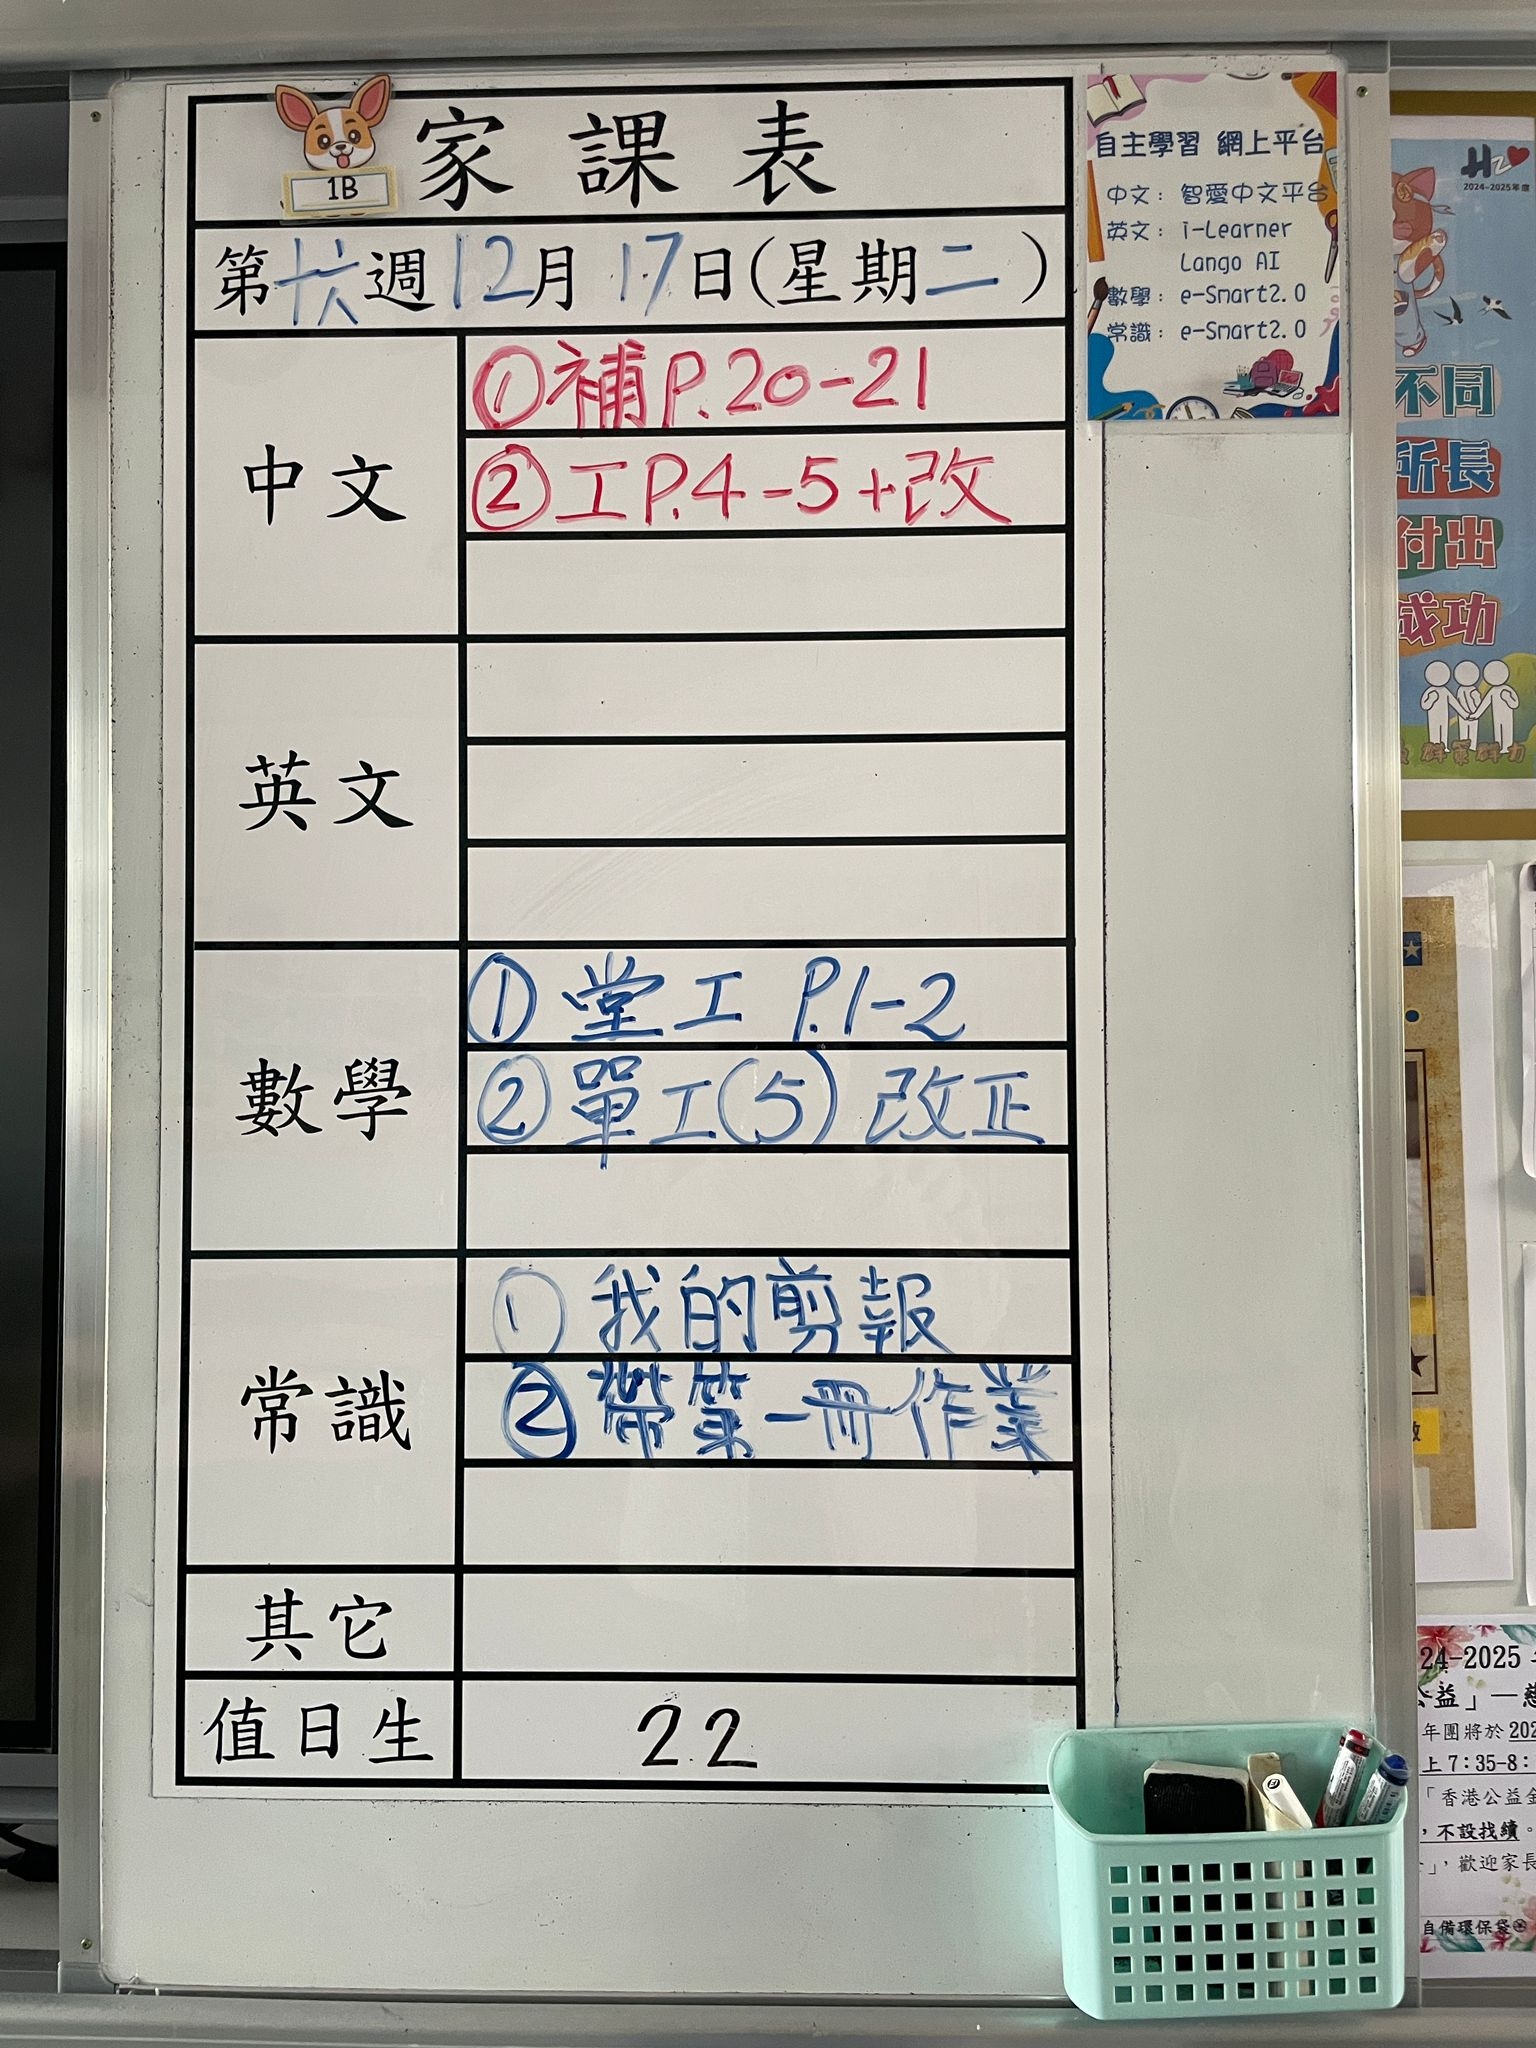 家課表
1B
第十六週12月17日(星期二)
中文
①補P.20-21
②工P.4-5+改
英文
數學
①堂工 P.1-2
②單工(5)改正
常識
①我的剪報
②帶第一冊作業
其它
值日生
22
自主學習 網上平台
中文：智愛中文平台
英文：i-Learner
Lango AI
數學：e-Smart2.0
常識：e-Smart2.0
2024-2025年度
不同
所長
付出
成功
群策群力
24-2025
公益」—
年團將於 202
上 7：35-8：
「香港公益金
，不設找續。
」，歡迎家長
自備環保袋